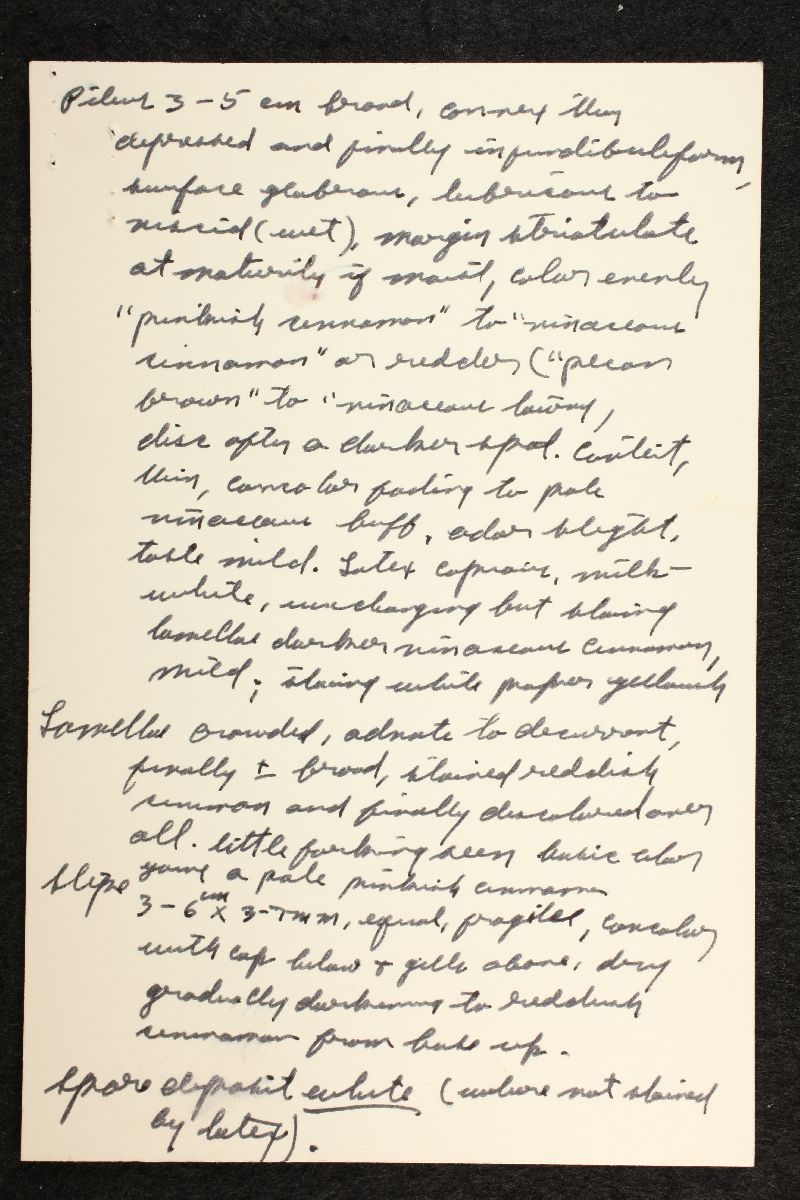 Pileus 3-5 cm broad, convex then
depressed and finally infundibuliform,
surface glabrous, lubricous to
viscid (wet), margin striatulate
at maturity if moist, color evenly
"pinkish cinnamon" to "vinaceous
cinnamon" or redder ("pecan
brown" to "vinaceous tawny,
disc often a darker spot. Context,
thin, concolor fading to pale
vinaceous buff, odor slight,
taste mild. Latex copious, milk-
white, unchanging but staing
lamellae darker vinaceous cinnamon,
mild; staing white paper yellowish
Lamellae crowded, adnate to decurrent,
finally ± broad, stained reddish
cinnamon and finally discolored over
all. little forking seen basic color
young a pale pinkish cinnamon
Stipe 3-6 cm x 3-7 mm, equal, fragile, concolor
with cap below + gills above, dry
gradually darkening to reddish
cinnamon from base up.
Spore deposit white (where not stained
by latex).